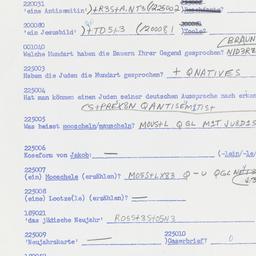 220031
'eine Antisemitin' )+R3S+A.NT3(/225002)
200080
'ein Jerusbild' )+TD5+3 (/200081 )Toole?
001010
Welche Hundart haben die Bauern Ihrer Gegend gesprochen?
225003
Haben die Juden die Hundart gesprochen? + QNATIVES
225004
Hat man können einen Juden seiner deutschen Aussprache nach erken
CS+PREKBN QANTISEMITIS+
225005
Was heisst mooscheln/mauscheln? MOVS+L QGL MIT JUEDIS
225006
Koseform von Jakob: — (-lein/-le/
225007
(ein) Mooschele (erzählen)? MO55+LX83 Q-U QGL
225008
(eine) Lootze(le) (erzählen)? —
189021
'das jüdische Neujahr' ROSS+3S+O5N3
225009
'Neujahrskarte' —
225010
)Gaserbrief? 0